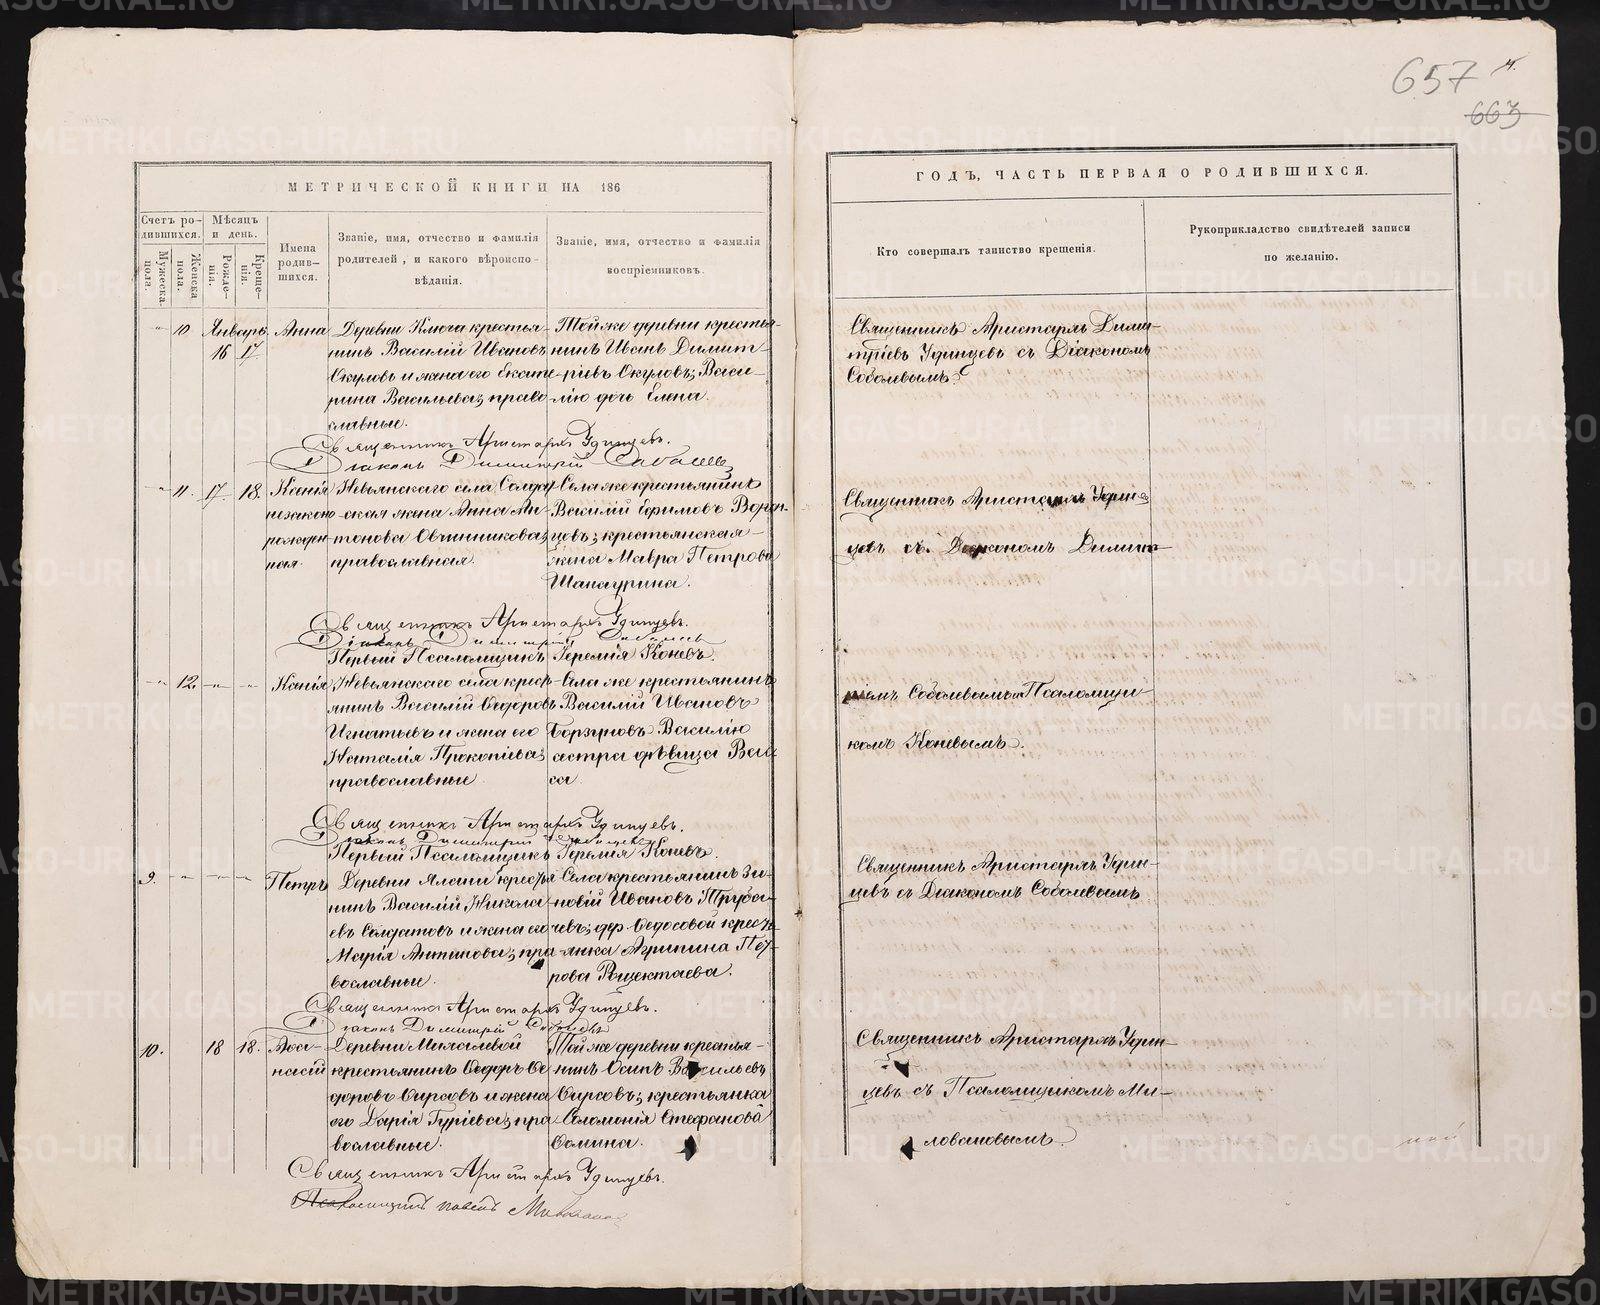 657
663
МЕТРИЧЕСКОЙ КНИГИ НА 186
ГОДЪ, ЧАСТЬ ПЕРВАЯ О РОДИВШИХСЯ.
Счетъ ро-
дившихся.
Мѣсяцъ
и день.
Мужеска
пола.
Женска
пола.
Рожде-
нія.
Креще-
нія.
Имена
родив-
шихся.
Званіе, имя, отчество и фамилія
родителей, и какого вѣроиспо-
вѣданія.
Званіе, имя, отчество и фамилія
воспріемниковъ.
Кто совершалъ таинство крещенія.
Рукоприкладство свидѣтелей записи
по желанію.
10. Январь.
16 17
Анна
Деревни Ключа крестья-
нинъ Василій Ивановъ
Окуловъ и жена его Екате-
рина Васильева, право-
славные.
Той же деревни крестья-
нинъ Иванъ Димит-
ріевъ Окуловъ; Васи-
лію дочь Елена.
Священникъ Аристархъ Дими-
тріевъ Удинцевъ съ Діакономъ
Соболевымъ.
Священникъ Аристархъ Удинцевъ.
Діаконъ Димитрій
11. 17 18.
Ксенія
незаконно
рожден-
ная.
Невьянскаго села Солдат-
ская жена Анна Ан-
тонова Овчинникова,
православная.
Села же крестьянинъ
Василій Ефимовъ Ворон-
цовъ; крестьянская
жена Мавра Петрова
Шанаурина.
Священникъ Аристархъ Удин-
цевъ съ Діакономъ Димит-
Священникъ Аристархъ Удинцевъ.
Діаконъ Димитрій
Первый Псаломщикъ Іеремія Коневъ.
12
Ксенія
Невьянскаго села крест-
янинъ Василій Ѳедоровъ
Игнатьевъ и жена его
Наталія Прокопіева,
православные
Села же крестьянинъ
Василій Ивановъ
Василію
сестра дѣвица Васи-
са
ріемъ Соболевымъ и Псаломщи-
комъ Коневымъ.
Священникъ Аристархъ Удинцевъ.
Діаконъ Димитрій
Первый Псаломщикъ Іеремія Коневъ.
9.
Петръ
Деревни Ялани крестья-
нинъ Василій Никола-
евъ Солдатовъ и жена его
Марія Антипова; пра-
вославные
Села крестьянинъ Зи-
новій Ивановъ Труба-
чевъ; дер. Ѳедосовой крест-
янка Агрипина Пет-
рова Рощектаева.
Священникъ Аристархъ Удин-
цевъ съ Діакономъ Соболевымъ
Священникъ Аристархъ Удинцевъ.
Діаконъ Димитрій
10. 18 18.
Аѳа-
насій
Деревни Михалевой
крестьянинъ Ѳедоръ Ѳе-
доровъ Ѳирсовъ и жена
его Дарія Гуріева; пра-
вославные.
Той же деревни крестья-
нинъ Осипъ Васильевъ
Ѳирсовъ; крестьянка
Соломонія Стефанова
Ѳомина.
Священникъ Аристархъ Удин-
цевъ съ Псаломщикомъ Ми-
ловановымъ.
Священникъ Аристархъ Удинцевъ.
METRIKI.GASO-URAL.RU